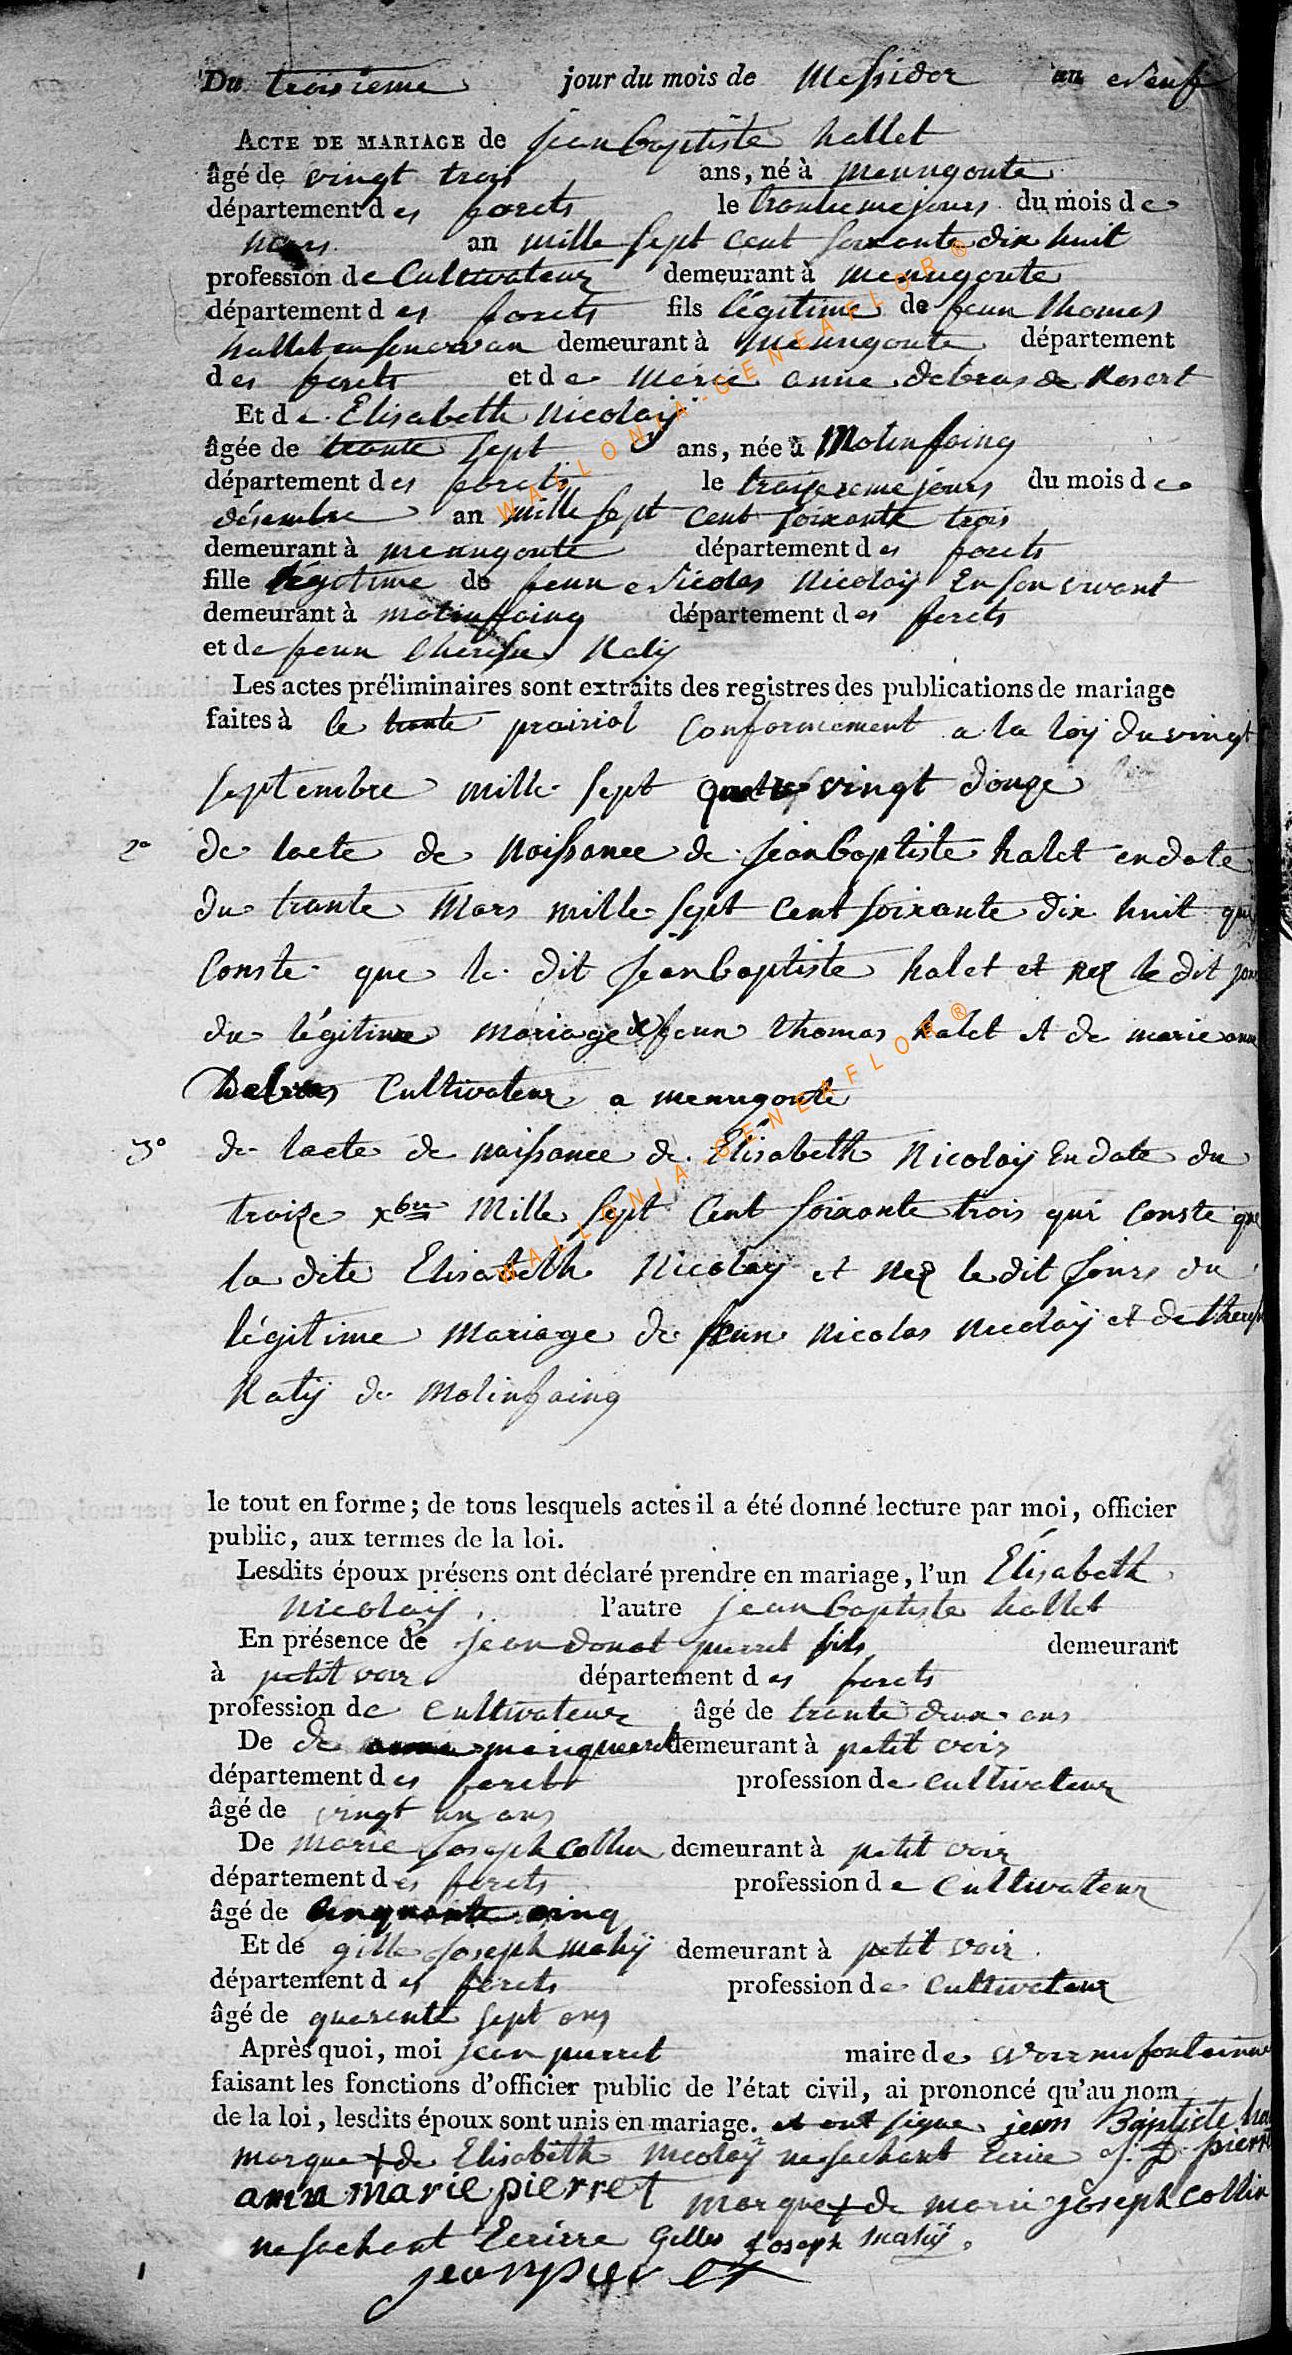 Du troisieme jour du mois de Messidor an neuf
ACTE DE MARIAGE de jeanbaptiste hallet
âgé de vingt trois ans, né à menugoute
département des forets le trantiemejours du mois de
Mars an mille sept cent soixante dix huit
profession de Cultivateur demeurant à menugoute
département des forets fils légitime de feun thomas
hallet demeurant à menugoute département
des forets et de merie anne debras de Rosart
Et de Elisabeth Nicolaÿ
âgée de trante sept ans, née à Molinfaing
département des forets le traizeiemejours du mois de
désembre an mille sept cent soixante trois
demeurant à menugoute département des forets
fille légitime de feun Nicolas Nicolaÿ En son vivant
demeurant à molinffaing département des forets
et de feun therese Katÿ
Les actes préliminaires sont extraits des registres des publications de mariage
faites à le trante prairial Conformement a la loÿ du vingt
septembre mille sept quatre vingt douze
2° de lacte de Naissance de jeanbaptiste halet en date
du trante Mars mille sept Cent soixante dix huit qui
Conste que le dit jeanbaptiste halet et nez le dit jour
du légitime mariage feun thomas halet et de marie anne
Debras Cultivateur a menugoute
3° de lacte de naissance de Elisabeth Nicolaÿ En date du
traize xbre Mille sept Cent soixante trois qui Conste que
la dite Elisabeth Nicolaÿ et Nez le dit jours du
légitime Mariage de feun Nicolas Nicolaÿ et de theres
Katÿ de Molinfaing
le tout en forme ; de tous lesquels actes il a été donné lecture par moi, officier
public, aux termes de la loi.
Lesdits époux présens ont déclaré prendre en mariage, l'un Elisabeth
Nicolaÿ l'autre jeanbaptiste hallet
En présence de jean donat pierret fils demeurant
à petit voir département des forets
profession de Cultivateur âgé de trante deux ans
De de anne marie pierret demeurant à petit voir
département des forets profession de Cultivateur
âgé de vingt un ans
De marie joseph Collin demeurant à petit voir
département des forets profession de Cultivateur
âgé de Cinquante cinq
Et de gille joseph mahÿ demeurant à petit voir
département des forets profession de Cultivateur
âgé de quarente sept ans
Après quoi, moi jean pierret maire de
faisant les fonctions d'officier public de l'état civil, ai prononcé qu'au nom
de la loi, lesdits époux sont unis en mariage. et ont signe jean Baptiste
marque + de Elisabeth Nicolaÿ ne sachant Ecrire J. D. pierret
anna marie pierret marque + de marie joseph Collin
ne sachant Ecrirre Gilles joseph mahÿ.
jean pierret
WALLONIA-GENEAFLOR®
WALLONIA-GENERFLOR®